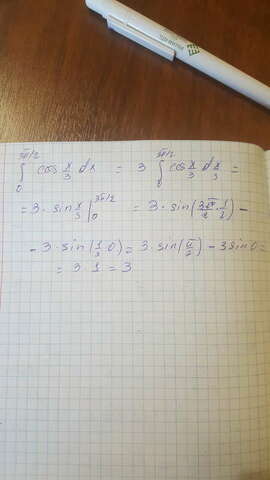 ∫₀^{3π/2} cos x/3 dx = 3 ∫₀^{3π/2} cos x/3 d x/3 =
= 3 · sin x/3 |₀^{3π/2} = 3 · sin(3π/2 · 1/3) −
− 3 · sin(1/3 · 0) = 3 · sin(π/2) − 3 sin 0 =
= 3 · 1 = 3